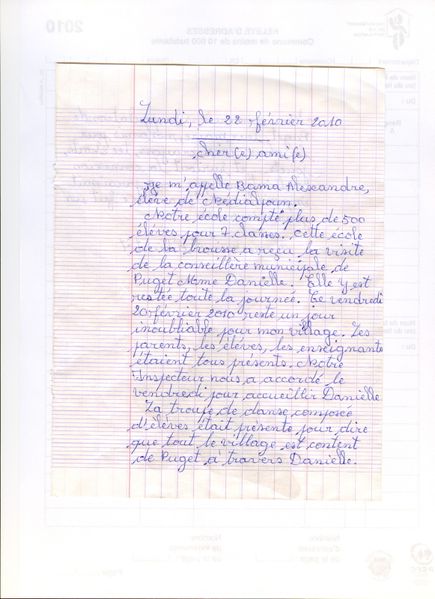 Lundi, le 22 février 2010
cher(e) ami(e)
Je m'apelle Bama Alexandre,
élève de
Notre école compte plus de 500
élèves pour 7 classes. Cette école
de la brousse a reçu la visite
de la conseillère municipale de
Puget Mme Danielle. Elle y est
restée toute la journée. Ce vendredi
20 février 2010 reste un jour
inoubliable pour mon village. Les
parents, les élèves, les enseignants
étaient tous présents. Notre
Inspecteur nous a accordé le
vendredi pour accueillir Danielle
La troupe de danse composée
d'élèves était présente pour dire
que tout le village est content
de Puget à travers Danielle.
2010
RELEVÉ D'ADRESSES
Commune de moins de 10 000 habitants